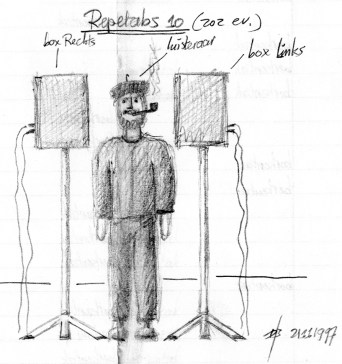 Repetabs 10 (202 ev.)
box Rechts
luisteraar
box Links
21111997